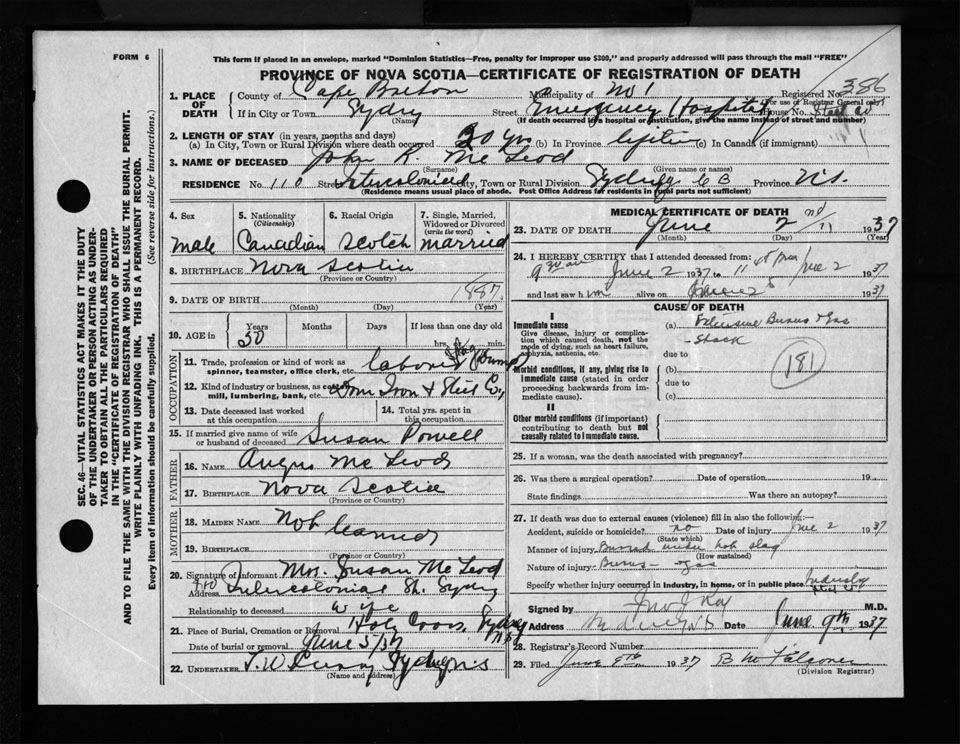 FORM 6
This form if placed in an envelope, marked "Dominion Statistics—Free, penalty for improper use $300," and properly addressed will pass through the mail "FREE"
PROVINCE OF NOVA SCOTIA—CERTIFICATE OF REGISTRATION OF DEATH
SEC. 46—VITAL STATISTICS ACT MAKES IT THE DUTY
OF THE UNDERTAKER OR PERSON ACTING AS UNDER-
TAKER TO OBTAIN ALL THE PARTICULARS REQUIRED
IN THE "CERTIFICATE OF REGISTRATION OF DEATH"
AND TO FILE THE SAME WITH THE DIVISION REGISTRAR WHO SHALL ISSUE THE BURIAL PERMIT.
WRITE PLAINLY WITH UNFADING INK. THIS IS A PERMANENT RECORD.
Every item of information should be carefully supplied. (See reverse side for instructions.)
1. PLACE OF DEATH
County of Cape Breton Municipality of No 1 Registered No. 386
(For use of Registrar General only)
If in City or Town Sydney Street Emergency Hospital House No.
(Name) (If death occurred in a hospital or institution, give the name instead of street and number)
2. LENGTH OF STAY (in years, months and days)
(a) In City, Town or Rural Division where death occurred 30 yrs (b) In Province (c) In Canada (if immigrant)
3. NAME OF DECEASED John R. Mc Leod
(Surname) (Given name or names)
RESIDENCE No. 110 Street Intercolonial City, Town or Rural Division Sydney C B Province N.S.
(Residence means usual place of abode. Post Office Address for residents in rural parts not sufficient)
4. Sex
male
5. Nationality
(Citizenship)
Canadian
6. Racial Origin
Scotch
7. Single, Married,
Widowed or Divorced
(write the word)
married
8. BIRTHPLACE Nova Scotia
(Province or Country)
9. DATE OF BIRTH 1887
(Month) (Day) (Year)
10. AGE in Years Months Days If less than one day old
50 hrs. min.
OCCUPATION
11. Trade, profession or kind of work as
spinner, teamster, office clerk, etc. laborer (Dump)
12. Kind of industry or business, as cotton
mill, lumbering, bank, etc. Dom Iron & Steel Co,
13. Date deceased last worked
at this occupation
14. Total yrs. spent in
this occupation
15. If married give name of wife
or husband of deceased Susan Powell
FATHER
16. NAME Angus Mc Leod
17. BIRTHPLACE Nova Scotia
(Province or Country)
MOTHER
18. MAIDEN NAME Not learned
19. BIRTHPLACE
(Province or Country)
20. Signature of informant Mrs. Susan Mc Leod
Address 110 Intercolonial St. Sydney
Relationship to deceased wife
21. Place of Burial, Cremation or Removal Holy Cross, Sydney N.S.
Date of burial or removal June 5/37
22. UNDERTAKER T.W. Curry Sydney N.S
(Name and address)
MEDICAL CERTIFICATE OF DEATH
23. DATE OF DEATH June 2nd 1937
(Month) (Day) (Year)
24. I HEREBY CERTIFY that I attended deceased from:
June 2 1937 to 11 June 2 1937
and last saw him alive on June 2 1937
CAUSE OF DEATH
I
Immediate cause
Give disease, injury or complica-
tion which caused death, not the
mode of dying, such as heart failure,
asphyxia, asthenia, etc.
(a) Extensive Burns & Gas
- Shock
due to
Morbid conditions, if any, giving rise to
immediate cause (stated in order
proceeding backwards from im-
mediate cause).
(b)
due to
(c)
181
II
Other morbid conditions (if important)
contributing to death but not
causally related to immediate cause.
25. If a woman, was the death associated with pregnancy?
26. Was there a surgical operation? Date of operation 19
State findings Was there an autopsy?
27. If death was due to external causes (violence) fill in also the following:—
Accident, suicide or homicide? no Date of injury June 2 1937
(State which)
Manner of injury Burned under hot slag
(How sustained)
Nature of injury Burns - gas
Specify whether injury occurred in industry, in home, or in public place Industry
Signed by M.D.
Address Sydney N S Date June 9th 1937
28. Registrar's Record Number
29. Filed June 8th 1937
(Division Registrar)